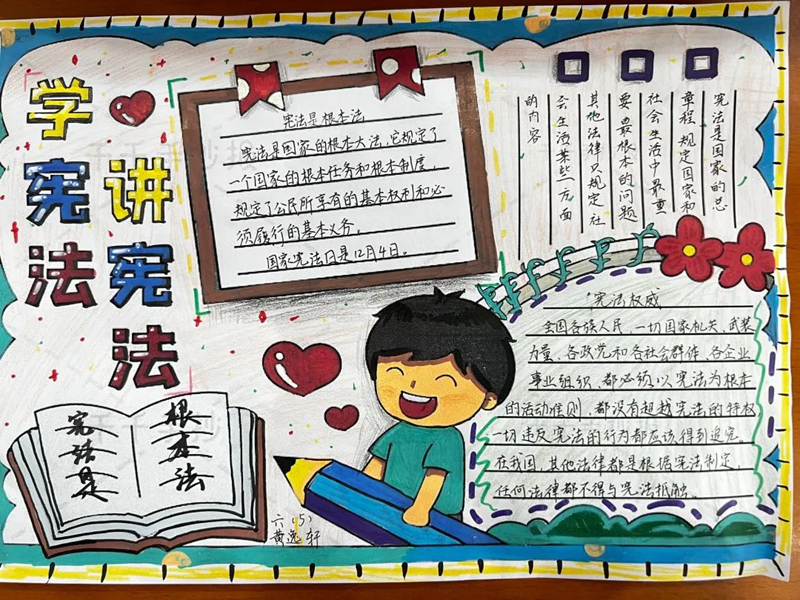 学宪法
讲宪法
宪法是根本法
宪法是国家的根本大法,它规定了
一个国家的根本任务和根本制度,
规定了公民所享有的基本权利和必
须履行的基本义务。
国家宪法日是12月4日。
宪法是国家的总
章程,规定国家和
社会生活中最重
要、最根本的问题
其他法律只规定社
会生活某些一方面
的内容
宪法权威
全国各族人民,一切国家机关、武装
力量、各政党和各社会群体、各企业
事业组织,都必须以宪法为根本
的活动准则,都没有超越宪法的特权
一切违反宪法的行为都应该得到追究。
在我国,其他法律都是根据宪法制定,
任何法律都不得与宪法抵触。
宪法是
根本法
六(5)
黄逸轩